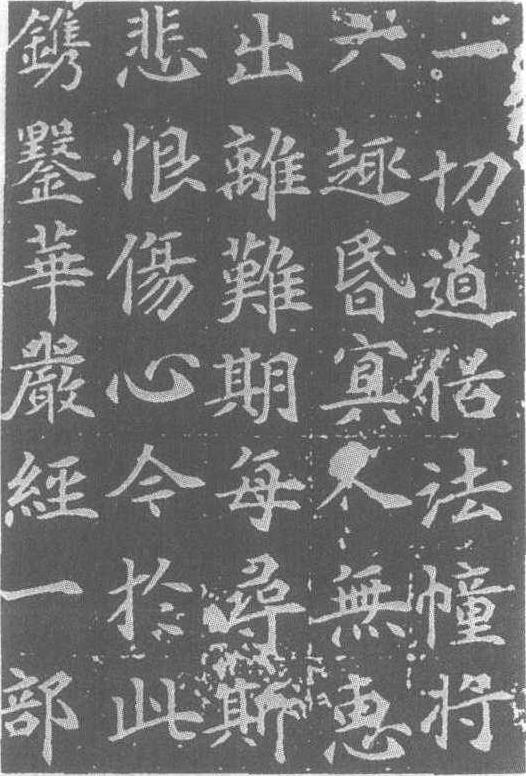 一切道俗法幢将
六趣昬冥人無惠
出離難期每尋斯
悲恨傷心今於此
鐫鑿華嚴經一部